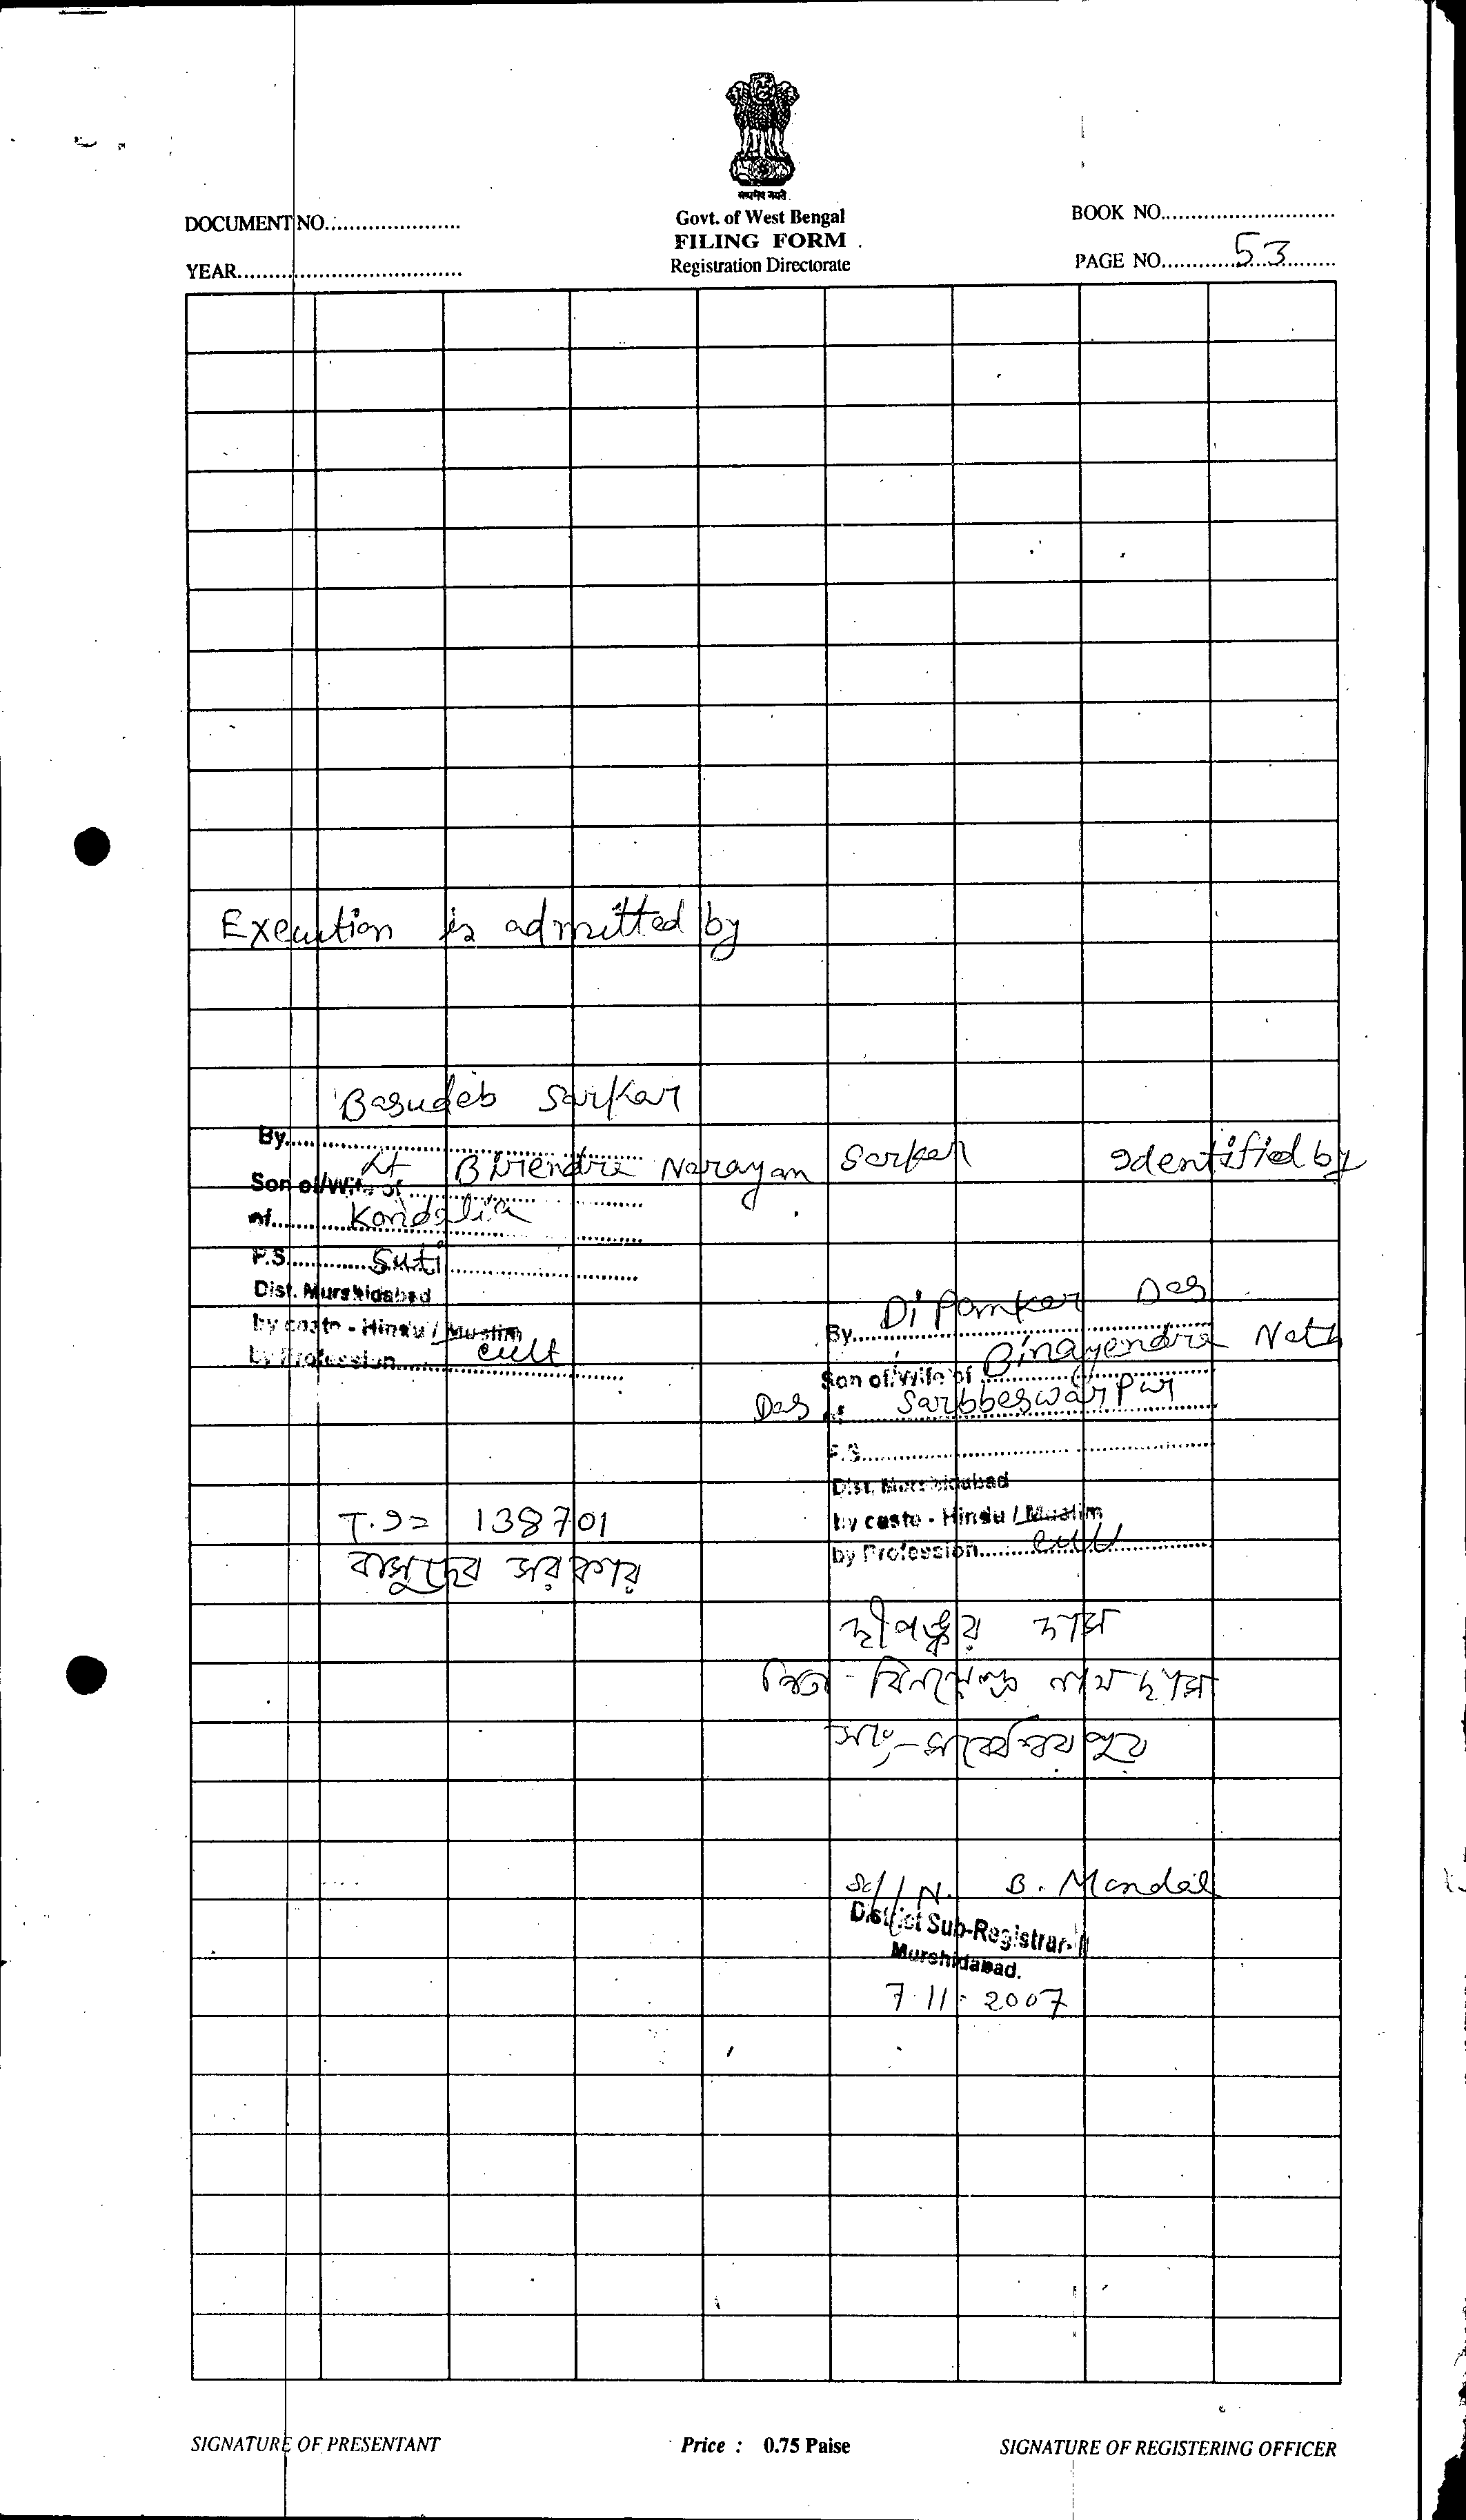 सत्यमेव जयते
Govt. of West Bengal
FILING FORM
Registration Directorate
DOCUMENT NO......................
YEAR.....................................
BOOK NO............................
PAGE NO............53........
Execution is admitted by
Basudeb Sarkar
By..........
Son of/Wife of Lt Birendra Narayan Sarkar
of.......... Kandalia
P.S.......... Suti
Dist. Murshidabad
by caste - Hindu / Muslim
by Profession.......... cult
Identified by
Dipankar Das
By..........
Son of/Wife of Binayendra Nath
Das of Sarbbeswarpur
P.S..........
Dist. Murshidabad
by caste - Hindu / Muslim
by Profession.......... cult
138701
বাসুদেব সরকার
দীপঙ্কর দাস
পিতা - বিনয়েন্দ্র নাথ দাস
সাং - সর্ব্বেশ্বরপুর
Sd/ N. B. Mandal
District Sub-Registrar-
Murshidabad.
7-11-2007
SIGNATURE OF PRESENTANT
Price : 0.75 Paise
SIGNATURE OF REGISTERING OFFICER